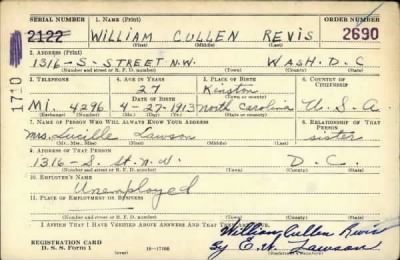 SERIAL NUMBER 1. NAME (Print) ORDER NUMBER
2122 WILLIAM CULLEN REVIS 2690
(First) (Middle) (Last)
2. ADDRESS (Print)
1316-S-STREET N.W. WASH. D.C
(Number and street or R. F. D. number) (Town) (County) (State)
3. TELEPHONE 4. AGE IN YEARS 5. PLACE OF BIRTH 6. COUNTRY OF CITIZENSHIP
27 Kinston
DATE OF BIRTH (Town or county)
Mi. 4296 4-27-1913 North Carolina U.S.A.
(Exchange) (Number) (Mo.) (Day) (Yr.) (State or country)
1710
7. NAME OF PERSON WHO WILL ALWAYS KNOW YOUR ADDRESS 8. RELATIONSHIP OF THAT PERSON
Mrs. Lucille Lawson sister
(Mr., Mrs., Miss) (First) (Middle) (Last)
9. ADDRESS OF THAT PERSON
1316-S. St. N.W. D.C.
(Number and street or R. F. D. number) (Town) (County) (State)
10. EMPLOYER'S NAME
Unemployed
11. PLACE OF EMPLOYMENT OR BUSINESS
(Number and street or R. F. D. number) (Town) (County) (State)
I AFFIRM THAT I HAVE VERIFIED ABOVE ANSWERS AND THAT THEY ARE TRUE.
William Cullen Revis
REGISTRATION CARD
D. S. S. Form 1 (over) 16-17105 By E.W. Lawson
(Registrant's signature)